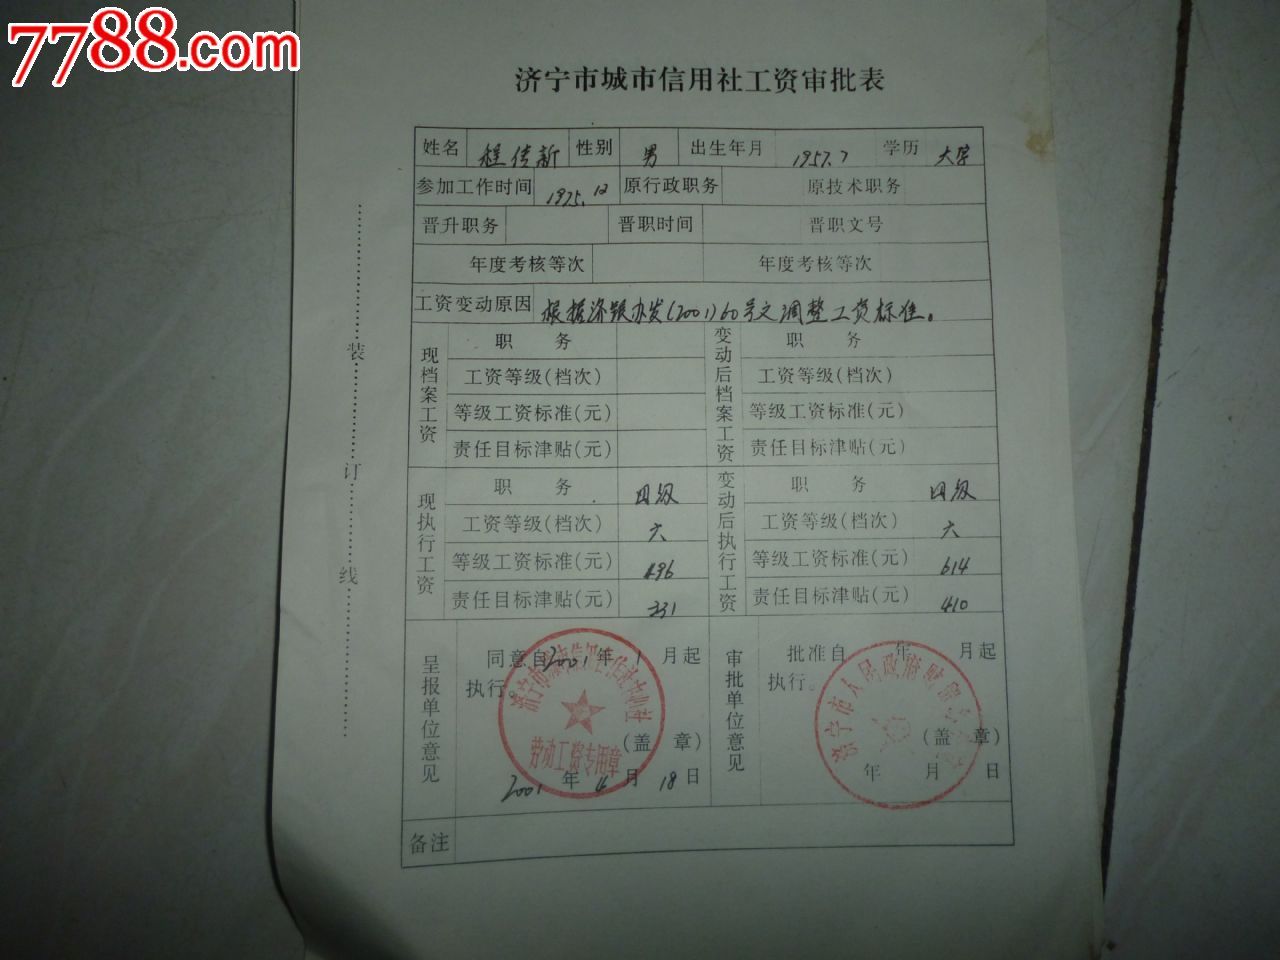 7788.com
济宁市城市信用社工资审批表
姓名 程传新 性别 男 出生年月 1957.7 学历 大学
参加工作时间 1975.12 原行政职务 原技术职务
晋升职务 晋职时间 晋职文号
年度考核等次 年度考核等次
工资变动原因 根据济银办发(2001)60号文调整工资标准。
现档案工资 职务 变动后档案工资 职务
工资等级(档次) 工资等级(档次)
等级工资标准(元) 等级工资标准(元)
责任目标津贴(元) 责任目标津贴(元)
现执行工资 职务 四级 变动后执行工资 职务 四级
工资等级(档次) 六 工资等级(档次) 六
等级工资标准(元) 496 等级工资标准(元) 614
责任目标津贴(元) 331 责任目标津贴(元) 410
呈报单位意见 同意自2001年1月起 审批单位意见 批准自 年 月起
执行。 执行。
(盖章) (盖章)
劳动工资专用章
2001年4月18日 年 月 日
济宁市人民政府财贸
备注
装订线